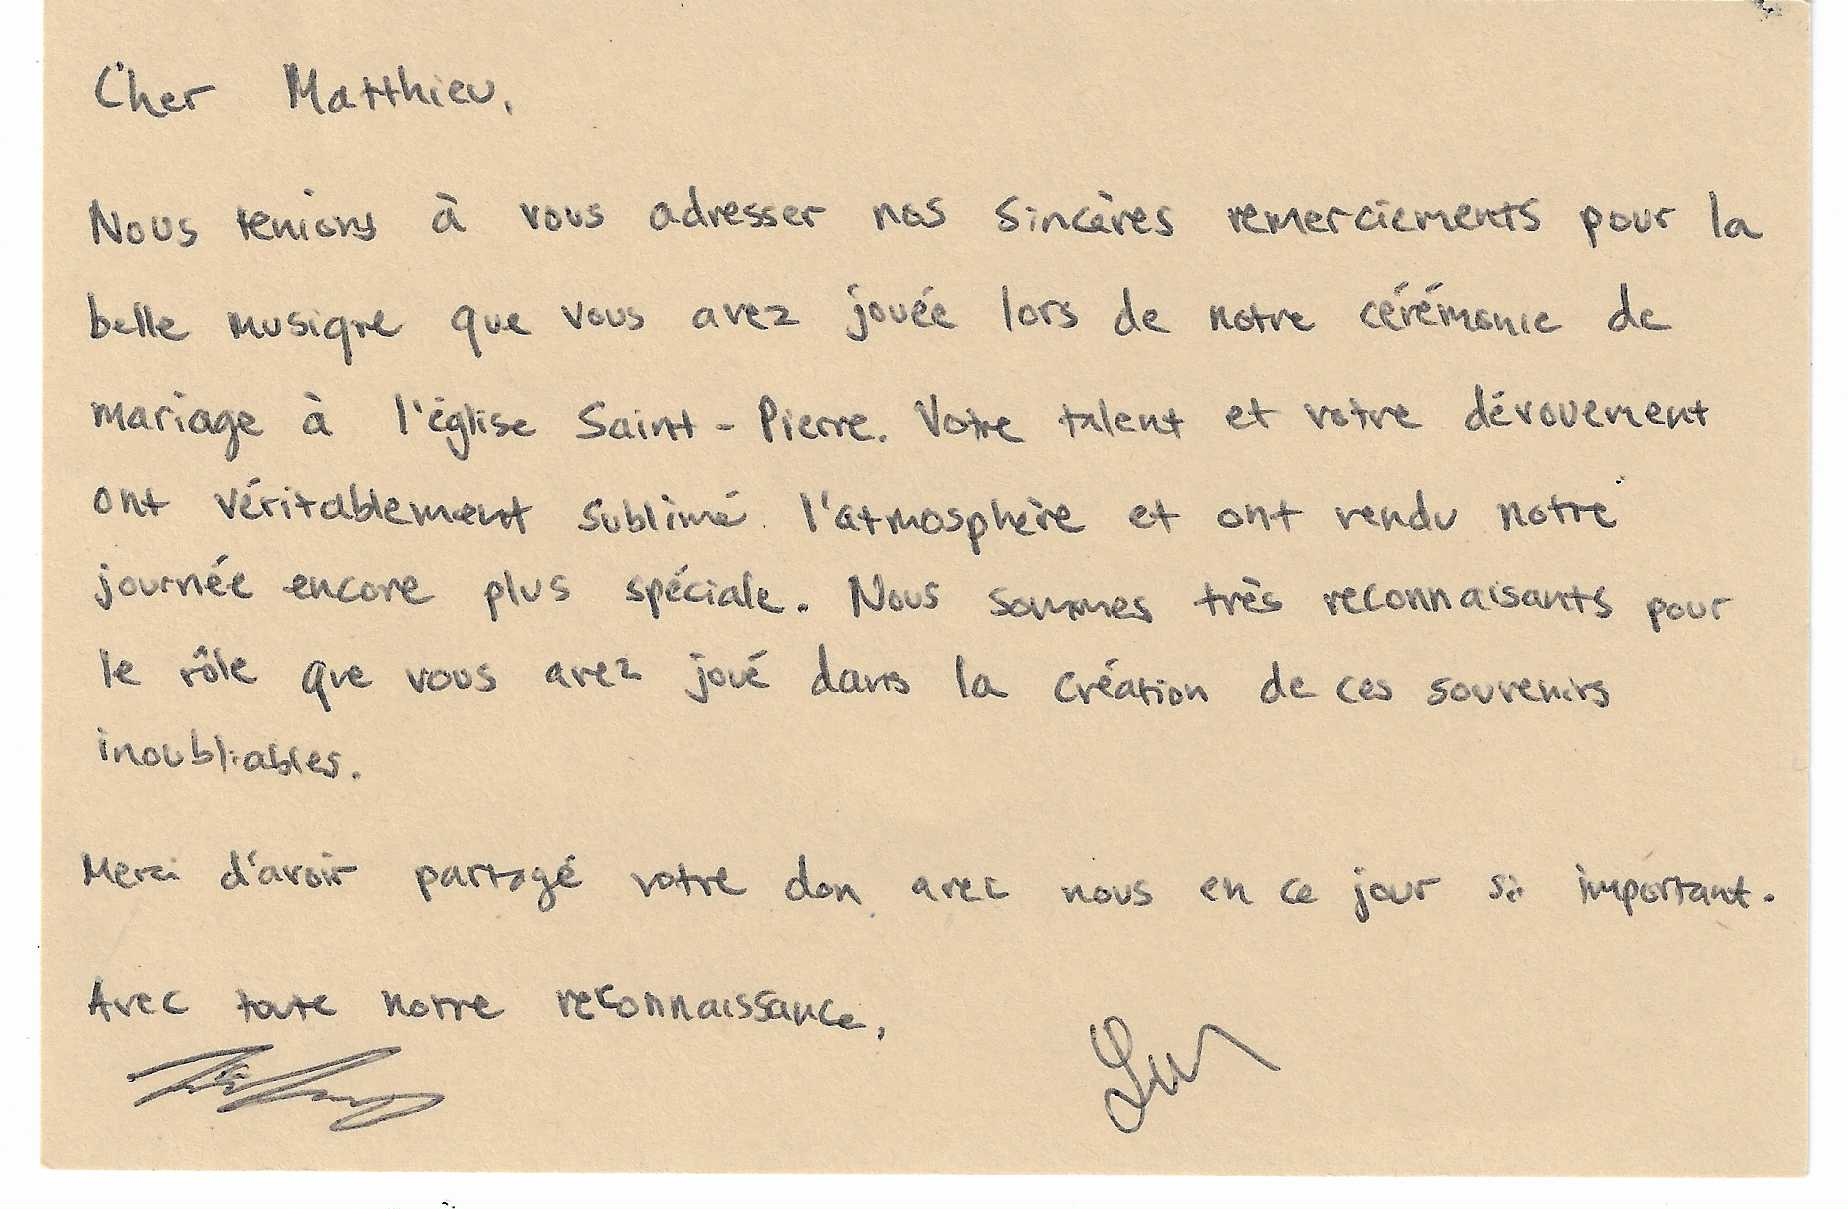 Cher Matthieu,
Nous tenions à vous adresser nos sincères remerciements pour la
belle musique que vous avez jouée lors de notre cérémonie de
mariage à l'église Saint-Pierre. Votre talent et votre dévouement
ont véritablement sublimé l'atmosphère et ont rendu notre
journée encore plus spéciale. Nous sommes très reconnaisants pour
le rôle que vous avez joué dans la création de ces souvenirs
inoubliables.
Merci d'avoir partagé votre don avec nous en ce jour si important.
Avec toute notre reconnaissance,